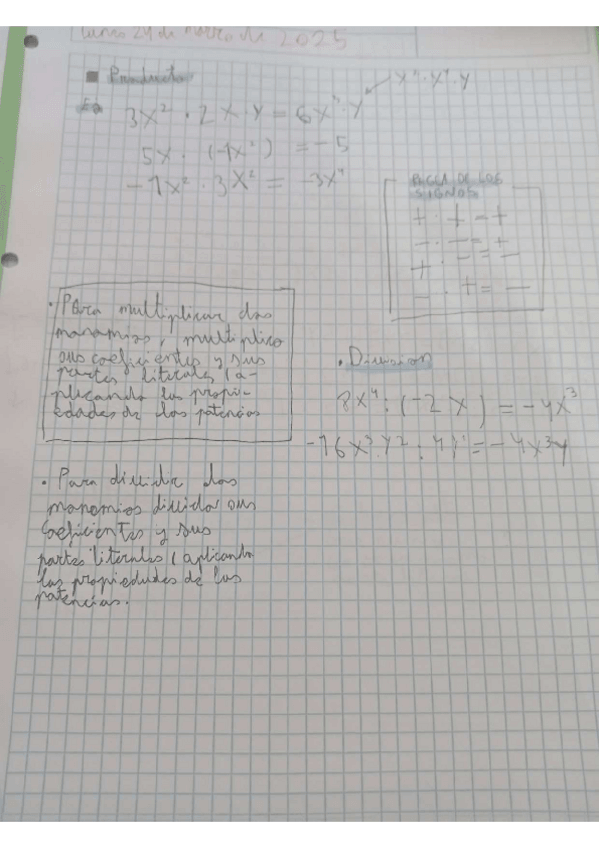 Lunes 24 de marzo de 2025
Producto
x² · x¹ · y
3x² · 2x · y = 6x³ · y
5x · (-1x²) = -5
-1x² · 3x² = -3x⁴
REGLA DE LOS
SIGNOS
+ · + = +
- · - = +
+ · - = -
- · + = -
· Para multiplicar dos
monomios, multiplico
sus coeficientes y sus
partes literales (a-
plicando las propi-
edades de las potencias
· Division
8x⁴ : (-2x) = -4x³
-16x³y² : 4y¹ = -4x³y
· Para dividir dos
monomios divido sus
coeficientes y sus
partes literales (aplicando
las propiedades de las
potencias.